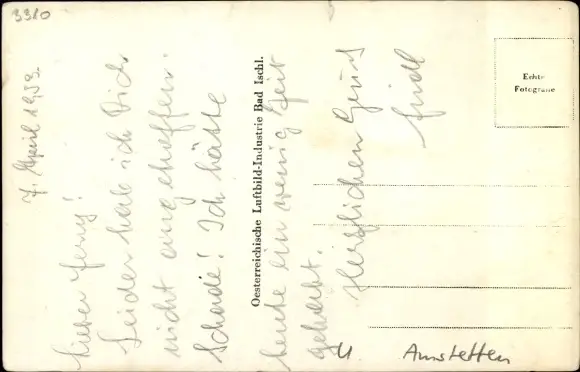 3310
7. April 1933.
Lieber Ferry!
Leider hab ich Dich
nicht angetroffen.
Schade! Ich hätte
heute ein wenig Zeit
gehabt.
Herzlichen Gruß
Oesterreichische Luftbild-Industrie Bad Ischl.
Echte
Fotografie
Amstetten